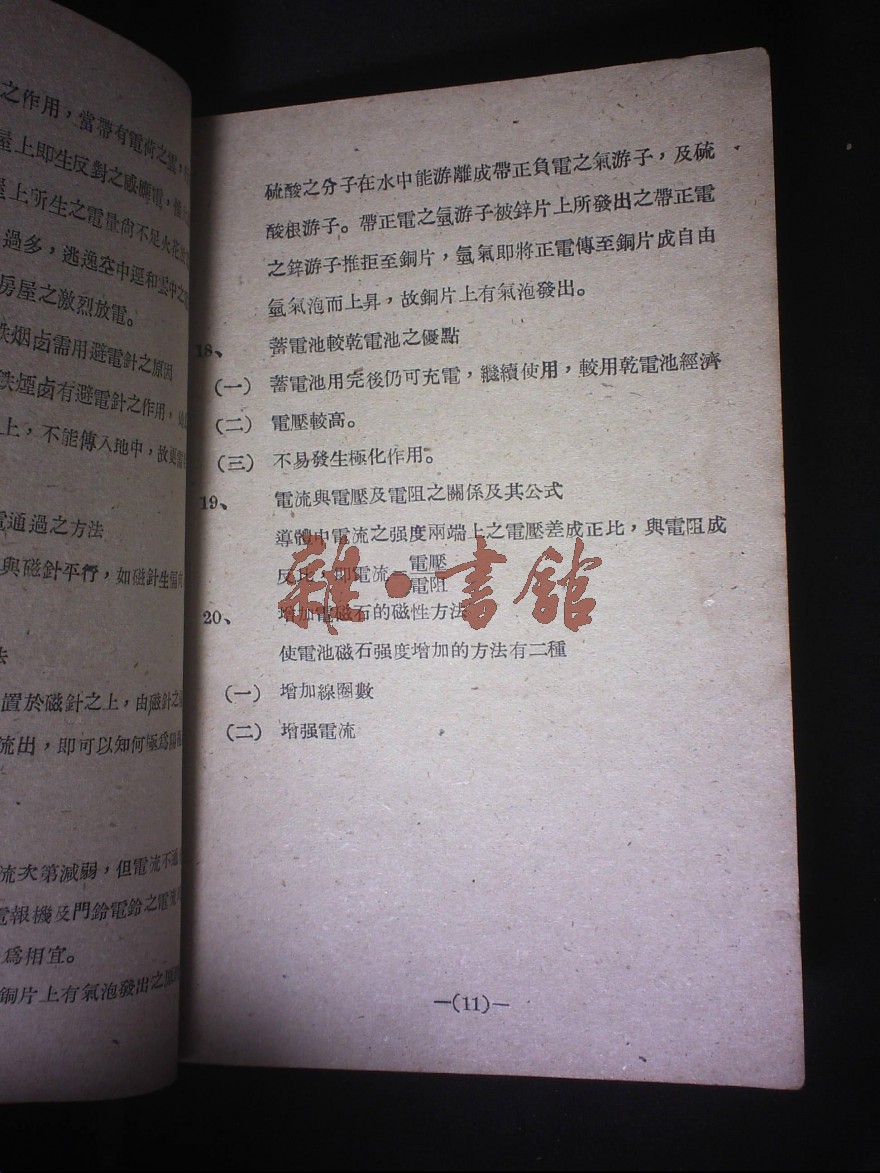 之作用，當帶有電荷之雲，
屋上即生反對之感應電，
屋上所生之電量尙不足火花
過多，逃逸空中逕和雲中之
房屋之激烈放電。
鉄烟卤需用避電針之原因
鉄煙卤有避電針之作用，
上，不能傳入地中，故更需
電通過之方法
與磁針平行，如磁針生偏向
法
置於磁針之上，由磁針之
流出，即可以知何極爲陽
流次第減弱，但電流不通
電報機及門鈴電鈴之電
爲相宜。
銅片上有氣泡發出之
硫酸之分子在水中能游離成帶正負電之氣游子，及硫
酸根游子。帶正電之氫游子被鋅片上所發出之帶正電
之鋅游子推拒至銅片，氫氣即將正電傳至銅片成自由
氫氣泡而上昇，故銅片上有氣泡發出。
18、 蓄電池較乾電池之優點
(一) 蓄電池用完後仍可充電，繼續使用，較用乾電池經濟
(二) 電壓較高。
(三) 不易發生極化作用。
19、 電流與電壓及電阻之關係及其公式
導體中電流之强度兩端上之電壓差成正比，與電阻成
反比，即電流=電壓/電阻
20、 增加電磁石的磁性方法
使電池磁石强度增加的方法有二種
(一) 增加線圈數
(二) 增强電流
—(11)—
雜·書館